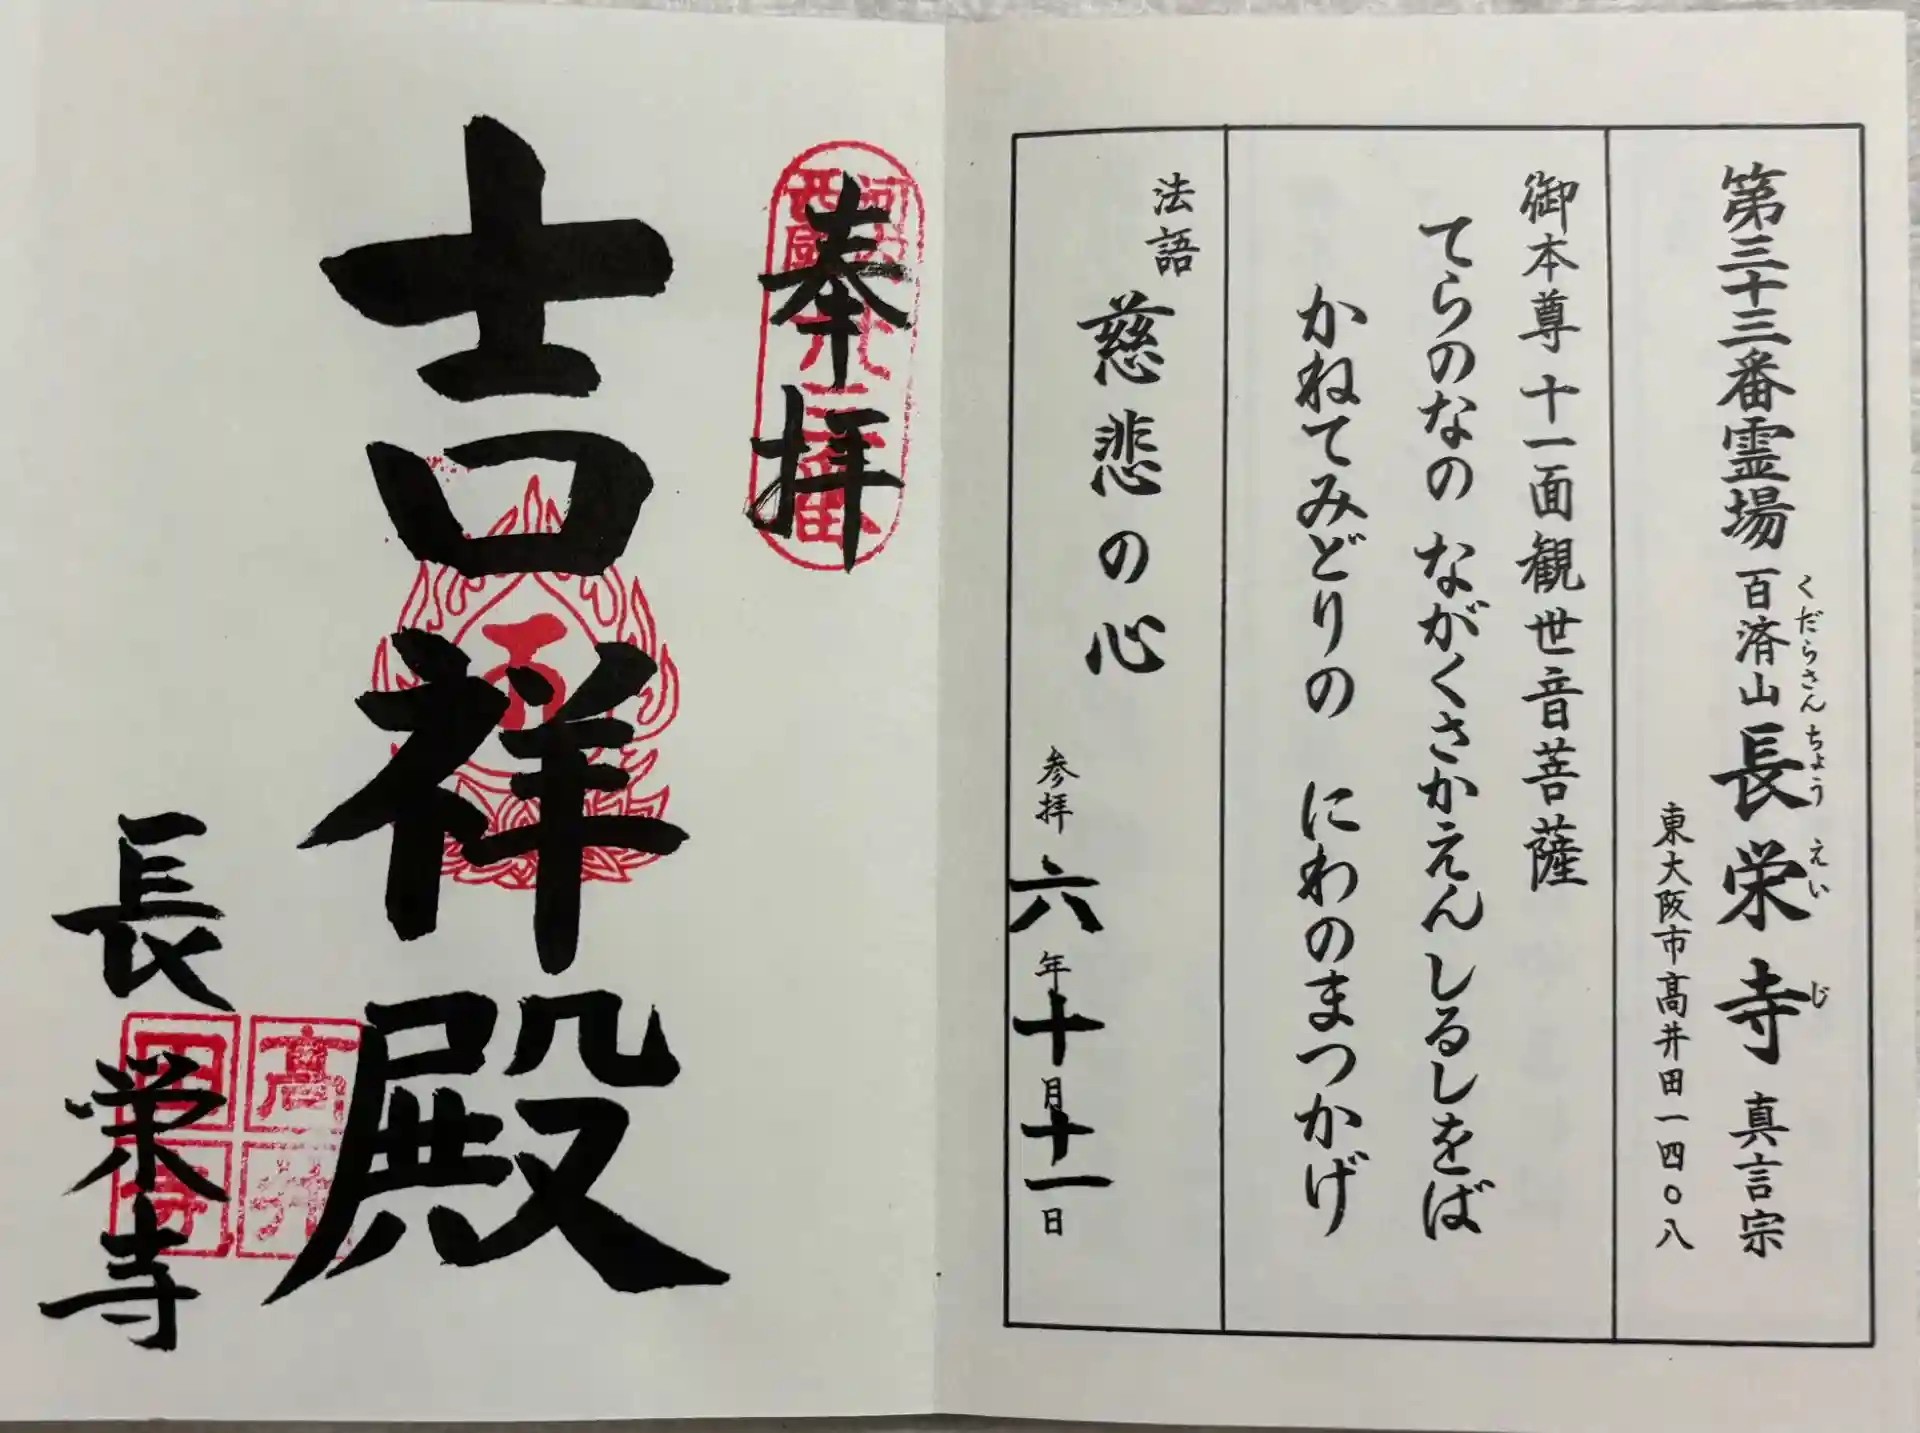 第三十三番霊場 百済山 長栄寺 真言宗
くだらさん ちょう えい じ
東大阪市高井田一四〇八
御本尊 十一面観世音菩薩
てらのなの ながくさかえん しるしをば
かねてみどりの にわのまつかげ
法語 慈悲の心
参拝 六年十月十一日
奉拝
吉祥殿
長栄寺
高井